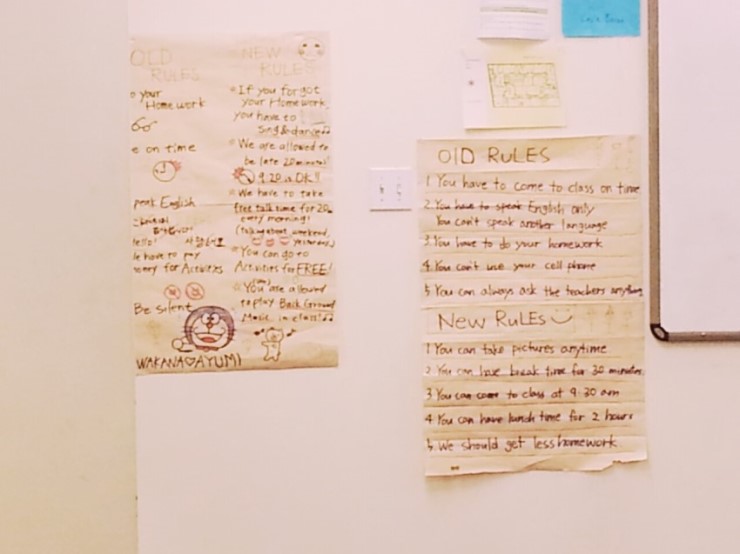 OLD
RULES
your
Homework
e on time
peak English
Hello!
e have to pay
money for Activities
Be silent
WAKANA♡AYUMI
NEW
RULES
If you forgot
your Homework
you have to
Sing & dance♪♪
We are allowed to
be late 20minutes!
9:20 is OK!!
We have to take
free talk time for 20
every morning!
(talking about weekend,
yesterday)
You can go to
Activities for FREE!
You are allowed
to play Back Ground
Music in class!♪♪
OlD RULES
1 You have to come to class on time
2. You have to speak English only
You can't speak another language
3 You have to do your homework
4 You can't use your cell phone
5 You can always ask the teachers anything
New RuLES
1 You can take pictures anytime
2 You can have break time for 30 minutes
3 You can come to class at 9:30 am
4 You can have lunch time for 2 hours
5. We should get less homework